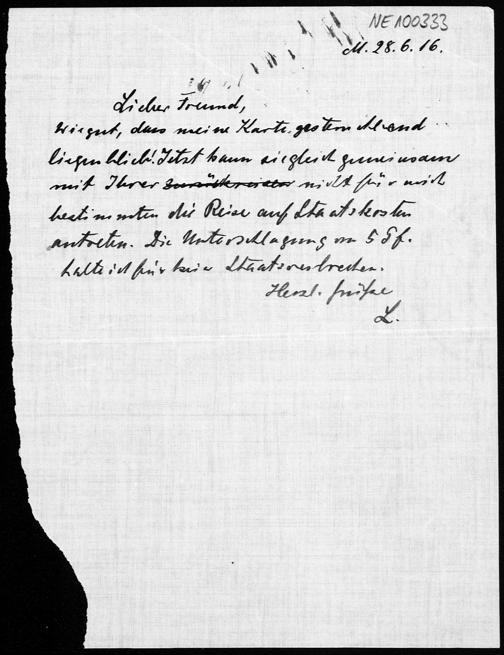 NE100333
M. 28.6.16.
Lieber Freund,
wie gut, dass meine Karte gestern Abend
liegen blieb! Jetzt kann sie gleich gemeinsam
mit Ihrer zurückreisen nicht für mich
bestimmten die Reise auf Staatskosten
antreten. Die Unterschlagung von 5 Pf.
halte ich für kein Staatsverbrechen.
Herzl. Grüße
L.